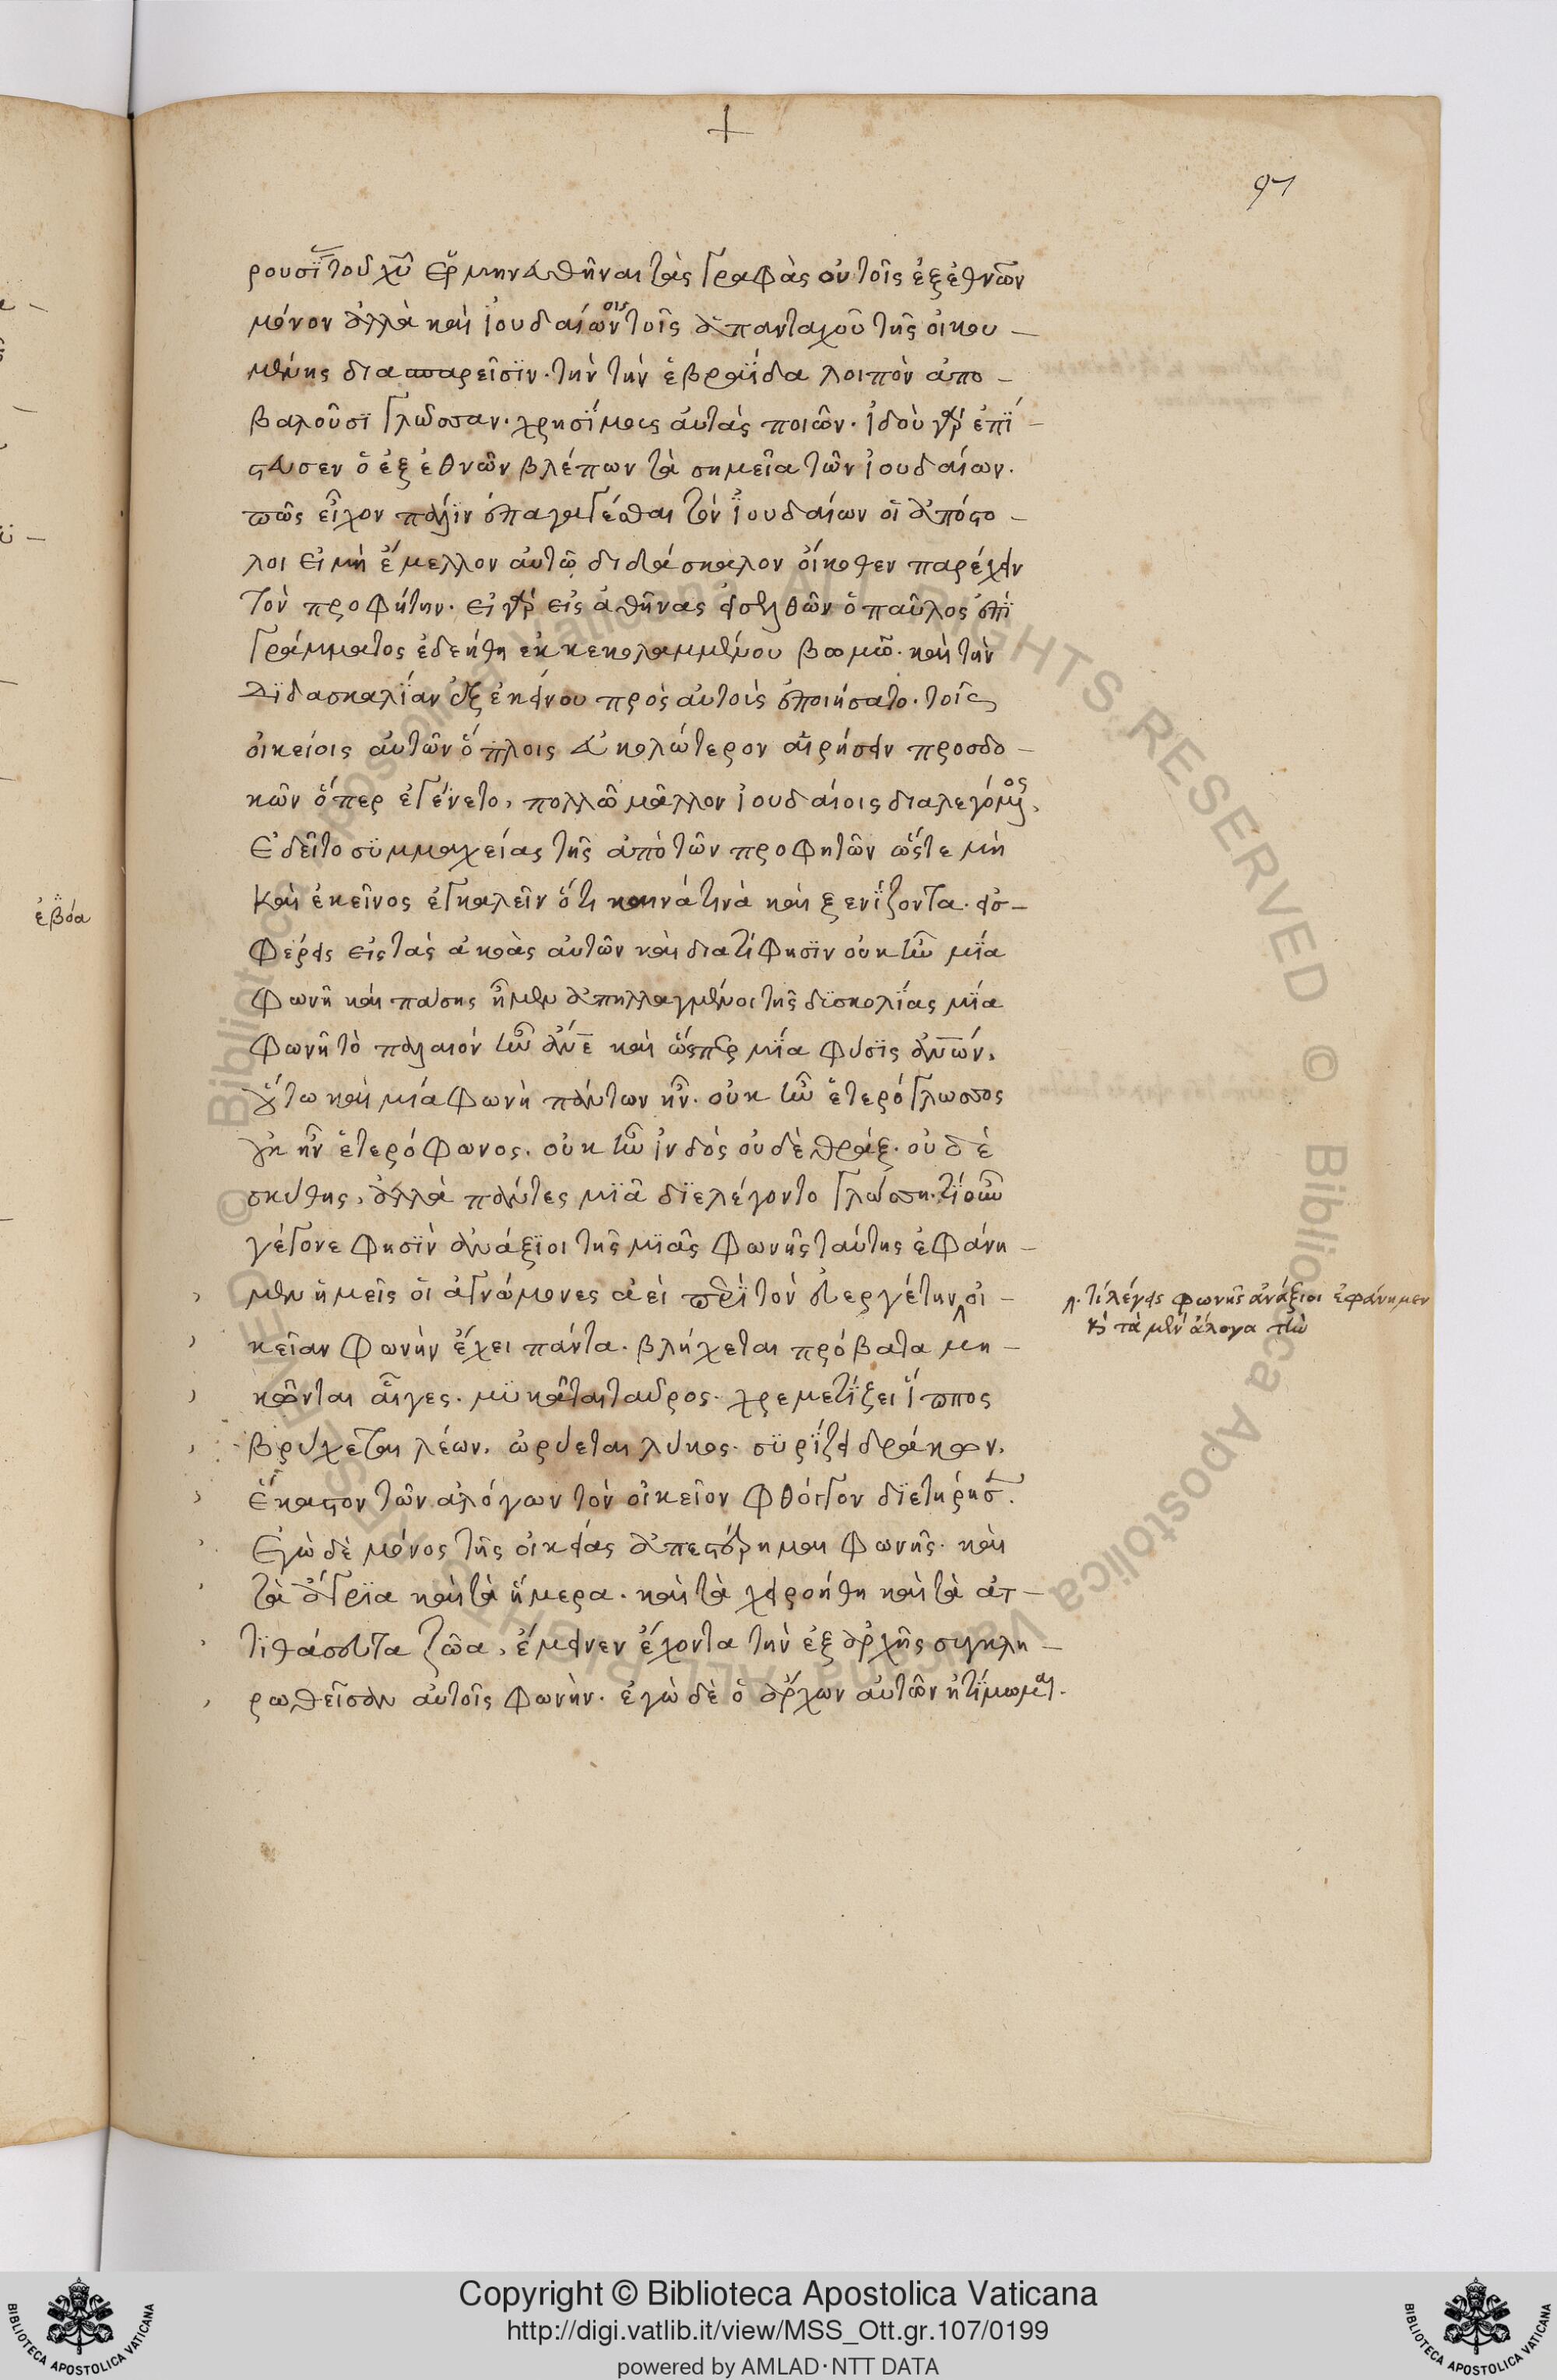 97
ρουσΐ τοῦ χῦ ἑρμηνευθῆναι τὰς γραφὰς οὐ τοῖς ἐξ ἐθνῶν
μόνον ἀλλὰ καὶ ἰουδαίων οις τοῖς ἁπανταχοῦ τῆς οἰκου –
μένης διασπαρεῖσϊν. τὴν τὴν ἑβραΐδα λοιπὸν ἀπο –
βαλοῦσϊ γλῶσσαν. χρησΐμους αὐτὰς ποιῶν. ἰδοὺ γὰρ ἐπΐ –
στευσεν ὁ ἐξ ἐθνῶν βλέπων τὰ σημεῖα τῶν ἰουδαίων.
πῶς εἶχον πάλϊν ἐπαγαγέσθαι τὸν ἰουδαίων οἱ ἀπόστο –
λοι εἰ μὴ ἔμελλον αὐτῶ διδάσκαλον οἴκοθεν παρέχειν
τὸν προφήτην. εἰ γὰρ εἰς ἀθήνας εἰσελθὼν ὁ παῦλος ἐπΐ
γράμματος ἐδεήθη ἐκκεκολαμμένου βωμῶ. καὶ τὴν
δϊδασκαλΐαν ἐξ ἐκείνου πρὸς αὐτοὺς ἐποιήσατο. τοῖς
οἰκείοις αὐτῶν ὅπλοις εὐκολώτερον αἱρήσειν προσδο –
κῶν ὅπερ ἐγένετο, πολλῶ μᾶλλον ἰουδαίοις διαλεγόμενος,
ἐδεῖτο σϋμμαχείας τῆς ἀπὸ τῶν προφητῶν ὥστε μὴ
κἀι ἐκεῖνος ἐγκαλεῖν ὅτι καινά τινὰ καὶ ξενΐζοντα. εἰσ –
φέρεις εἰς τὰς ἀκοὰς αὐτῶν καὶ διατί φησϊν οὐκ ἦν μΐα
φωνῆ καὶ πάσης ἦμεν ἀπηλλαγμένοι τῆς δϊσκολΐας μΐα
φωνῆ τὸ παλαιόν ἦν ἄνε καὶ ὥσπερ μΐα φύσϊς ἀνων.
οὕτω καὶ μία φωνὴ πάντων ἦν. οὐκ ἦν ἑτερόγλωσσος
οὐκ ἦν ἑτερόφωνος. οὐκ ἦν ἰνδὸς οὐδὲ θράξ. οὐδὲ
σκύθης, ἀλλὰ πάντες μϊᾶ δϊελέγοντο γλώσση. τΐ οὖν
γέγονε φησϊν ἀνάξϊοι τῆς μϊᾶς φωνῆς ταύτης ἐφάνη –
μεν ἡμεῖς οἱ ἀγνώμονες ἀεὶ περὶ τὸν εὐεργέτην οἰ –
κεῖαν φωνὴν ἔχει πάντα. βλήχεται πρόβατα μη –
κῶνται αἶγες. μϋκᾶται ταῦρος. χρεμετΐζει ΐππος
βρύχεται λέων. ὠρύεται λύκος. σϋρΐζει δράκων.
ἕκαστον τῶν ἀλόγων τὸν οἰκεῖον φθόγγον δϊετήρησ.
ἐγὼ δὲ μόνος τῆς οἰκείας ἀπεστέρημαι φωνῆς. καὶ
τὰ ἄγρϊα καὶ τὰ ἥμερα. καὶ τὰ χειροήθη καὶ τὰ ἀτ –
τϊθάσσευτα ζῶα, ἔμεινεν ἔχοντα τὴν ἐξ ἀρχῆς συγκλη –
ρωθεῖσαν αὐτοῖς φωνὴν. ἐγὼ δὲ ὁ ἄρχων αὐτῶν ἠτΐμωμαι.
λ. τί λέγεις φωνῆς ἀνάξιοι ἐφάνημεν
καὶ τὰ μὲν ἄλογα τὴν
ἐβόα
© Biblioteca Apostolica Vaticana ALL RIGHTS RESERVED
© Biblioteca Apostolica Vaticana ALL RIGHTS RESERVED
BIBLIOTECA APOSTOLICA VATICANA
Copyright © Biblioteca Apostolica Vaticana
http://digi.vatlib.it/view/MSS_Ott.gr.107/0199
powered by AMLAD·NTT DATA
BIBLIOTECA APOSTOLICA VATICANA